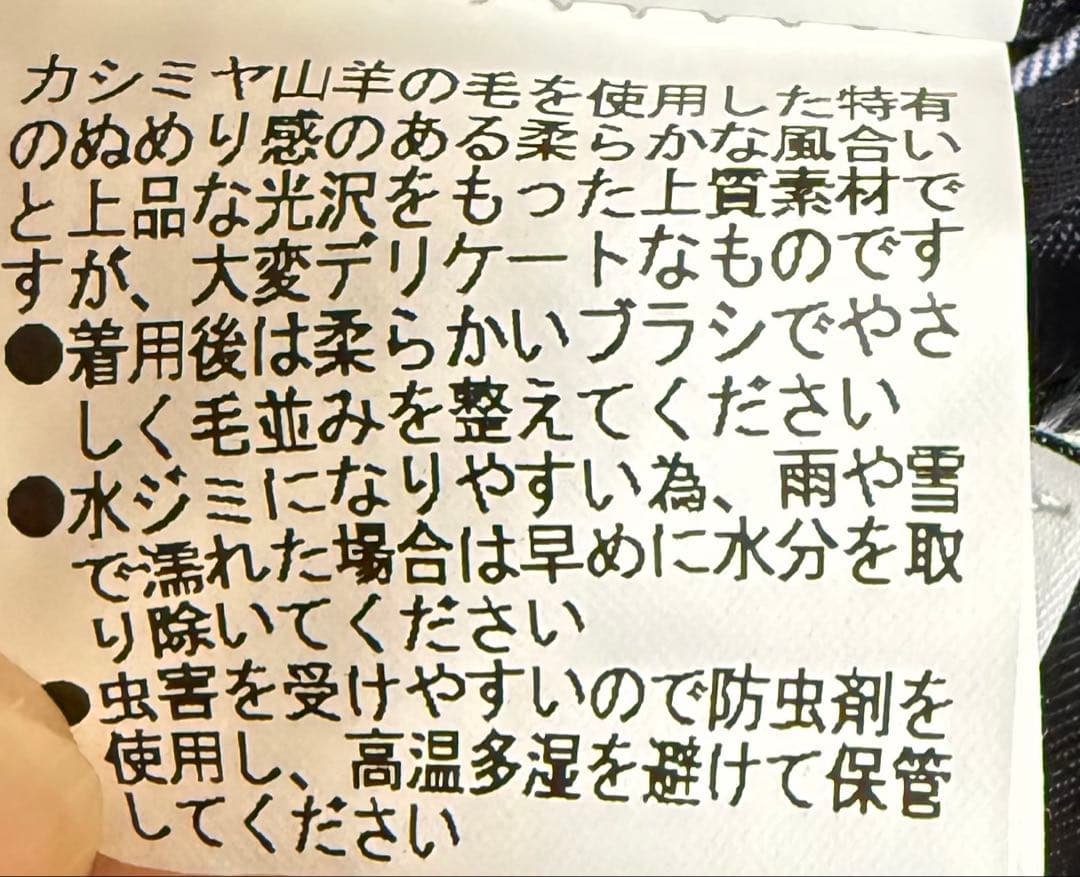 カシミヤ山羊の毛を使用した特有
のぬめり感のある柔らかな風合い
と上品な光沢をもった上質素材で
すが、大変デリケートなものです
●着用後は柔らかいブラシでやさ
しく毛並みを整えてください
●水ジミになりやすい為、雨や雪
で濡れた場合は早めに水分を取
り除いてください
●虫害を受けやすいので防虫剤を
使用し、高温多湿を避けて保管
してください